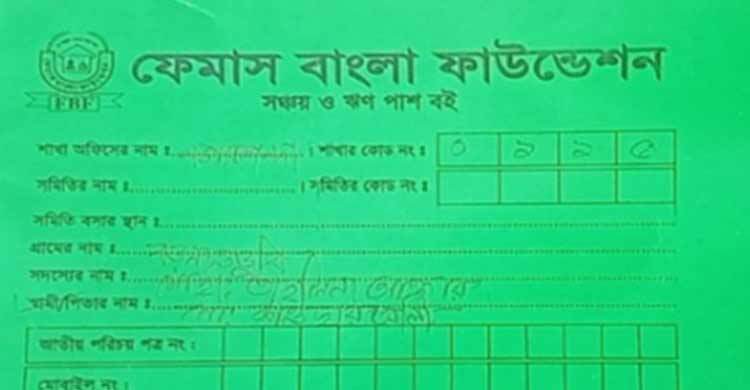 ফেমাস বাংলা ফাউন্ডেশন
FBF
সঞ্চয় ও ঋণ পাশ বই
শাখা অফিসের নাম ঃ । শাখার কোড নং ঃ ০ ১ ১ ৫
সমিতির নাম ঃ । সমিতির কোড নং ঃ
সমিতি বসার স্থান ঃ
গ্রামের নাম ঃ
সদস্যের নাম ঃ
স্বামী/পিতার নাম ঃ
জাতীয় পরিচয় পত্র নং ঃ
মোবাইল নং ঃ